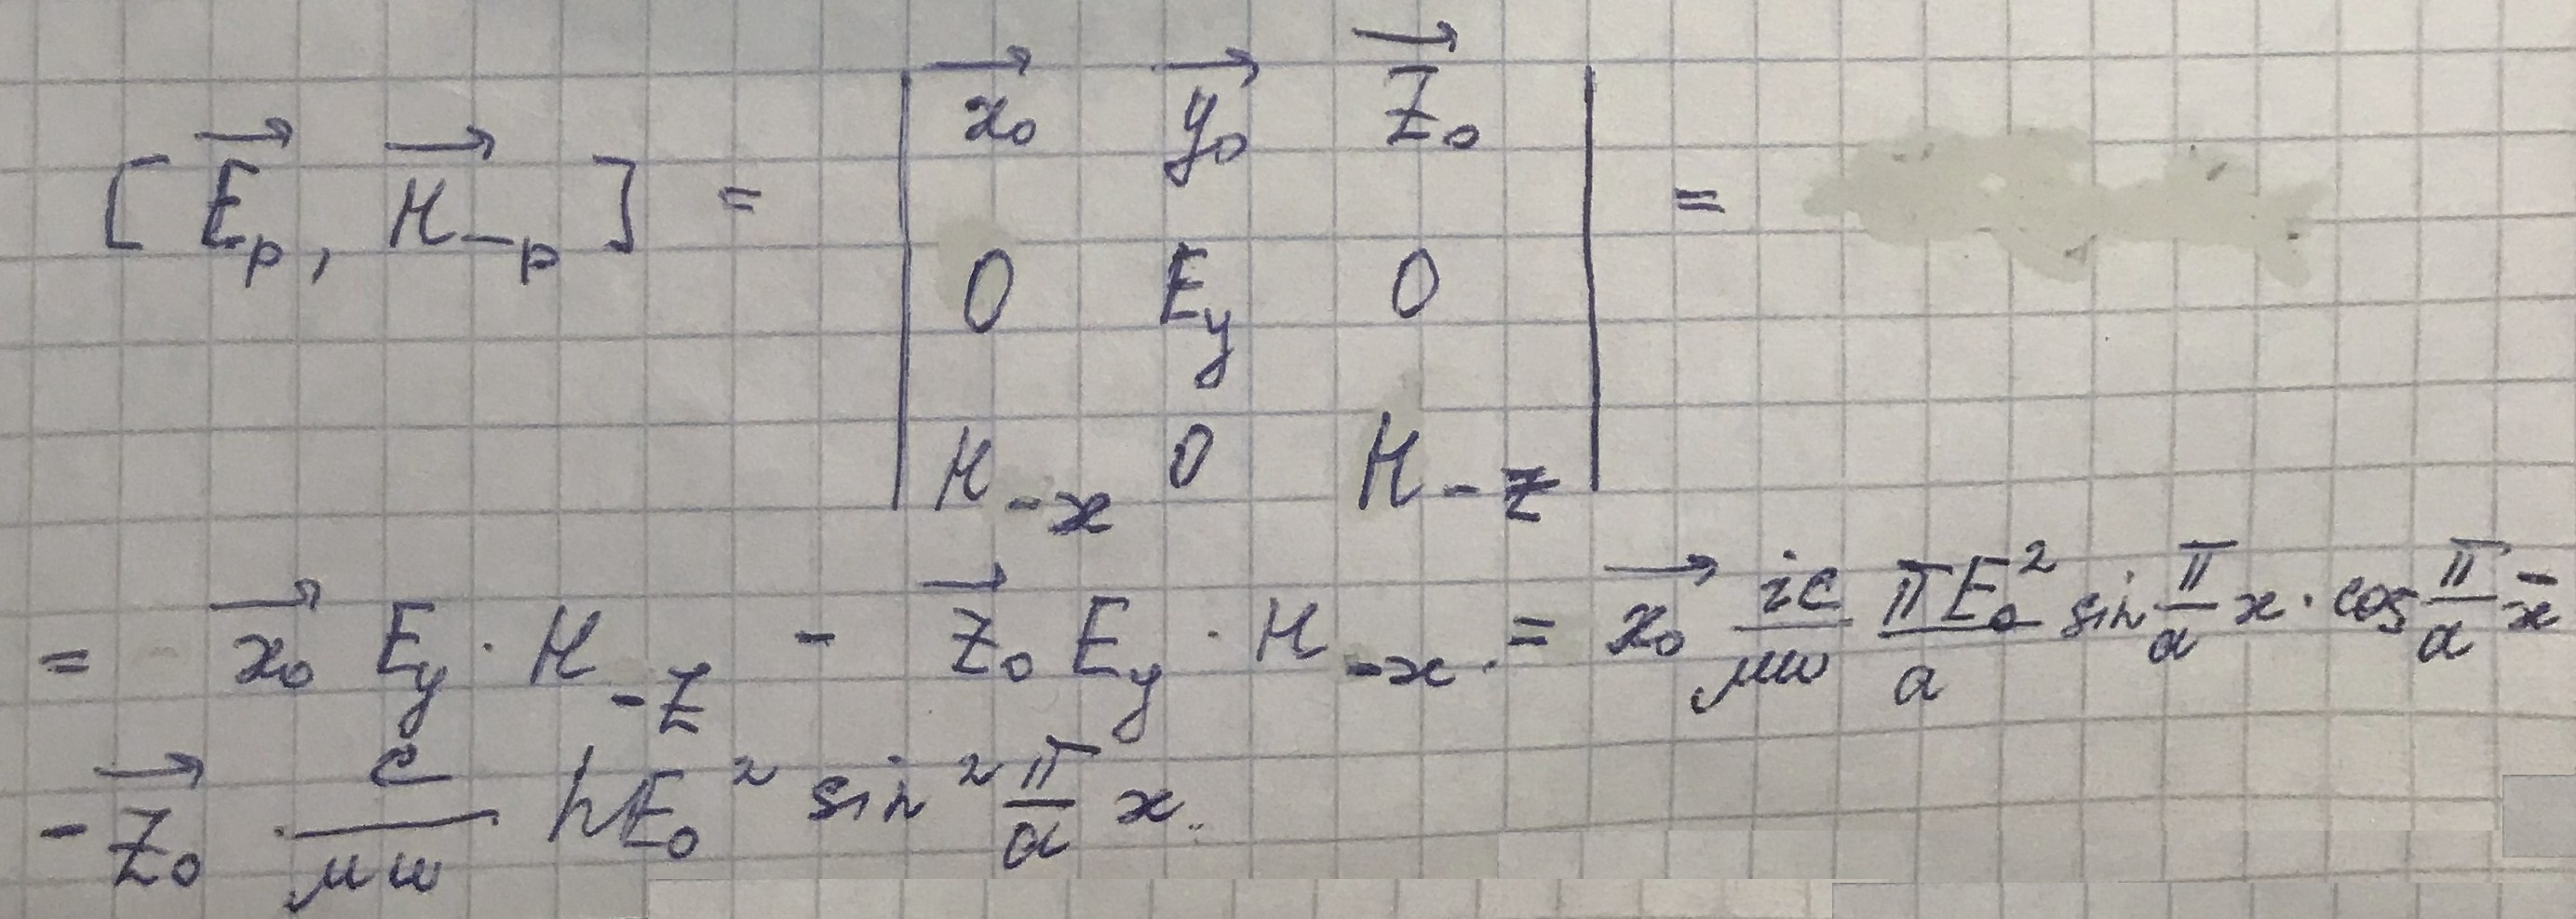 $[\overrightarrow{E_p}, \overrightarrow{H_{-p}}] = \begin{vmatrix} \overrightarrow{x_0} & \overrightarrow{y_0} & \overrightarrow{z_0} \\ 0 & E_y & 0 \\ H_{-x} & 0 & H_{-z} \end{vmatrix} =$
$= \overrightarrow{x_0} E_y \cdot H_{-z} - \overrightarrow{z_0} E_y \cdot H_{-x} = \overrightarrow{x_0} \frac{ic}{\mu\omega} \frac{\pi E_0^2}{a} \sin\frac{\pi}{a}x \cdot \cos\frac{\pi}{a}x -$
$- \overrightarrow{z_0} \cdot \frac{c}{\mu\omega} hE_0^2 \sin^2\frac{\pi}{a}x.$